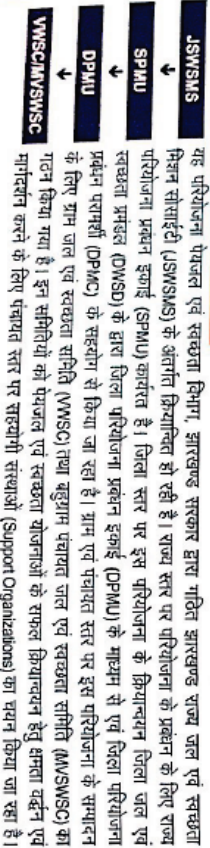 JSWSMS
SPMU
DPMU
VWSC/MVSWSC
यह परियोजना पेयजल एवं स्वच्छता विभाग, झारखण्ड सरकार द्वारा गठित झारखण्ड राज्य जल एवं स्वच्छता
मिशन सोसाईटी (JSWSMS) के अंतर्गत क्रियान्वित हो रही है। राज्य स्तर पर परियोजना के प्रबंधन के लिए राज्य
परियोजना प्रबंधन इकाई (SPMU) कार्यरत है। जिला स्तर पर इस परियोजना के क्रियान्वयन जिला जल एवं
स्वच्छता प्रमंडल (DWSD) के द्वारा जिला परियोजना प्रबंधन इकाई (DPMU) के माध्यम से एवं जिला परियोजना
प्रबंधन परामर्शी (DPMC) के सहयोग से किया जा रहा है। ग्राम एवं पंचायत स्तर पर इस परियोजना के सम्पादन
के लिए ग्राम जल एवं स्वच्छता समिति (VWSC) तथा बहुग्राम पंचायत जल एवं स्वच्छता समिति (MVSWSC) का
गठन किया गया है। इन समितियों को पेयजल एवं स्वच्छता योजनाओं के सफल क्रियान्वयन हेतु क्षमता वर्द्धन एवं
मार्गदर्शन करने के लिए पंचायत स्तर पर सहयोगी संस्थाओं (Support Organizations) का चयन किया जा रहा है।